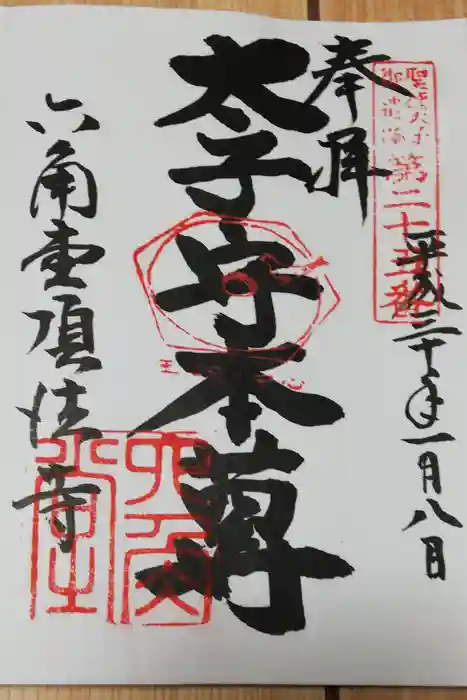 聖徳太子
御遺跡
第二十五番
平成三十年一月八日
奉拝
太子守本尊
六角堂頂法寺